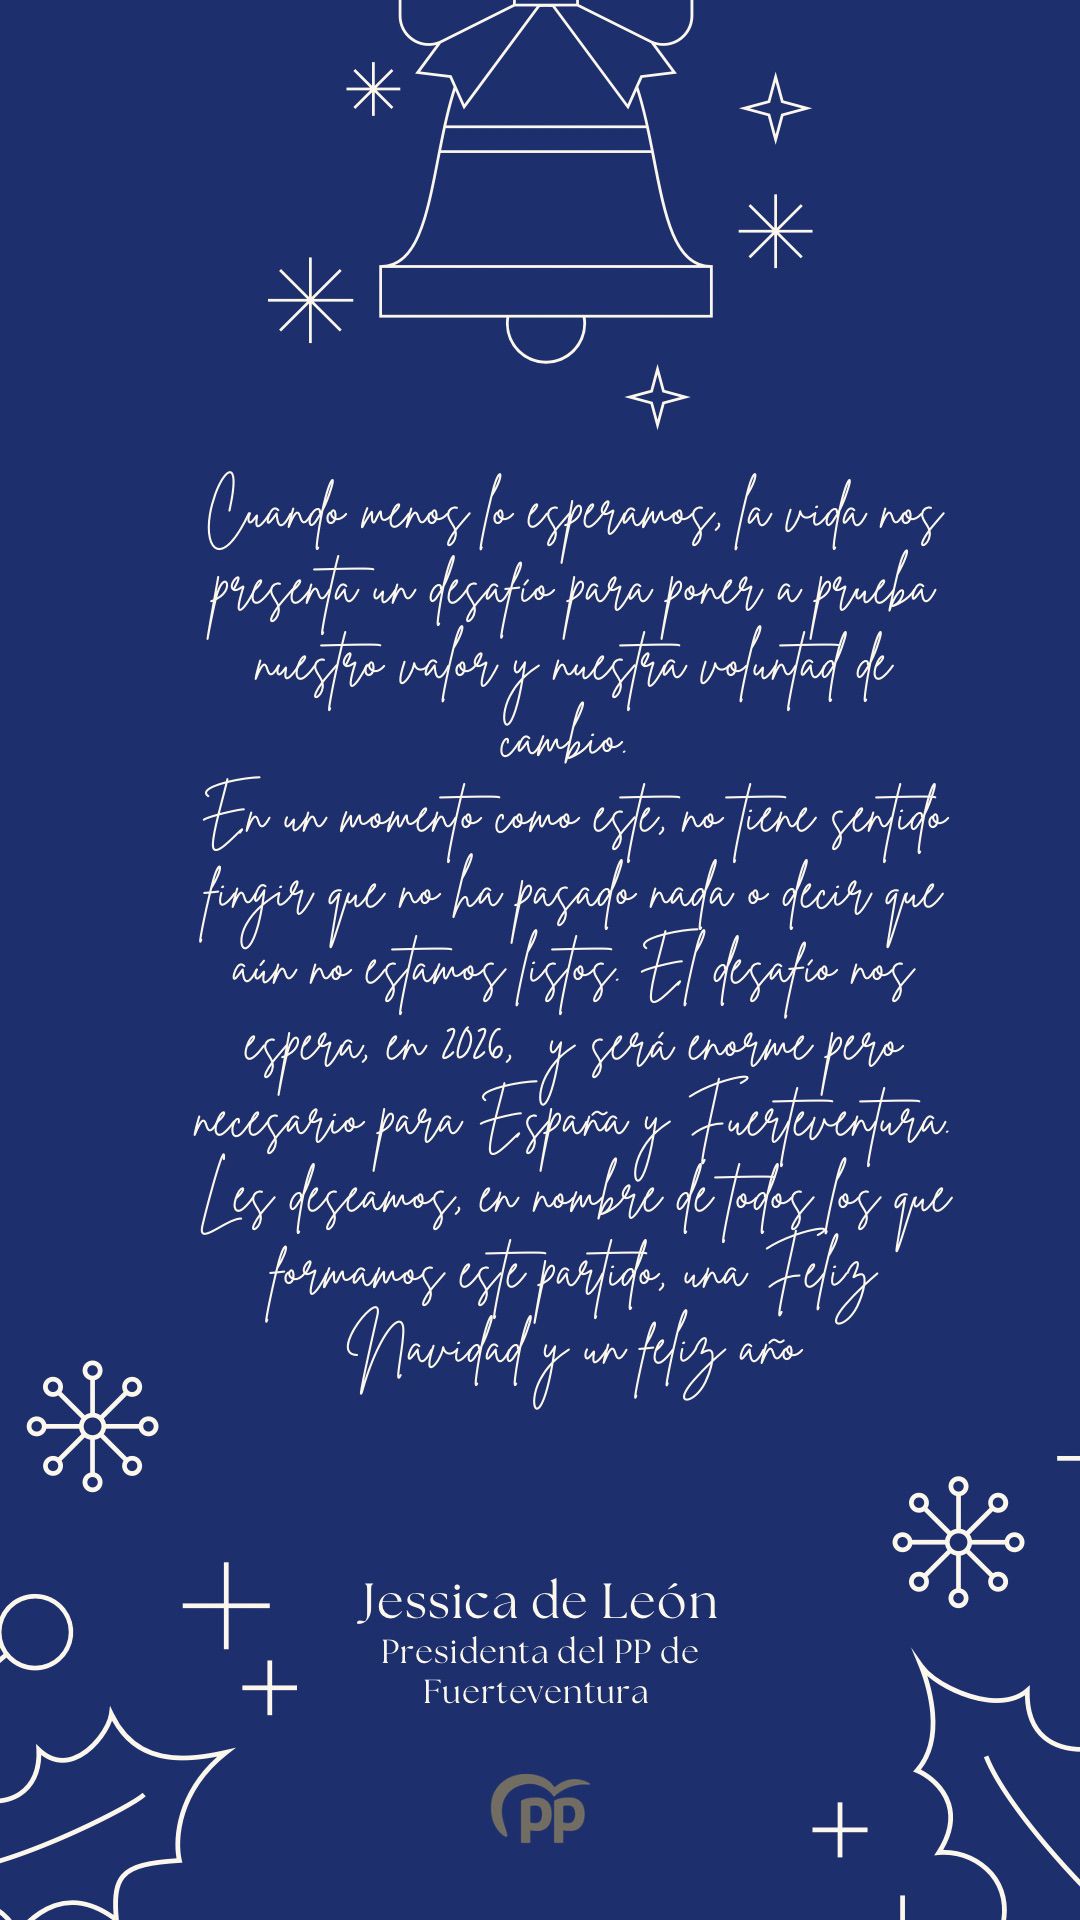 Cuando menos lo esperamos, la vida nos
presenta un desafío para poner a prueba
nuestro valor y nuestra voluntad de
cambio.
En un momento como este, no tiene sentido
fingir que no ha pasado nada o decir que
aún no estamos listos. El desafío nos
espera, en 2026, y será enorme pero
necesario para España y Fuerteventura.
Les deseamos, en nombre de todos los que
formamos este partido, una Feliz
Navidad y un feliz año
Jessica de León
Presidenta del PP de
Fuerteventura
pp